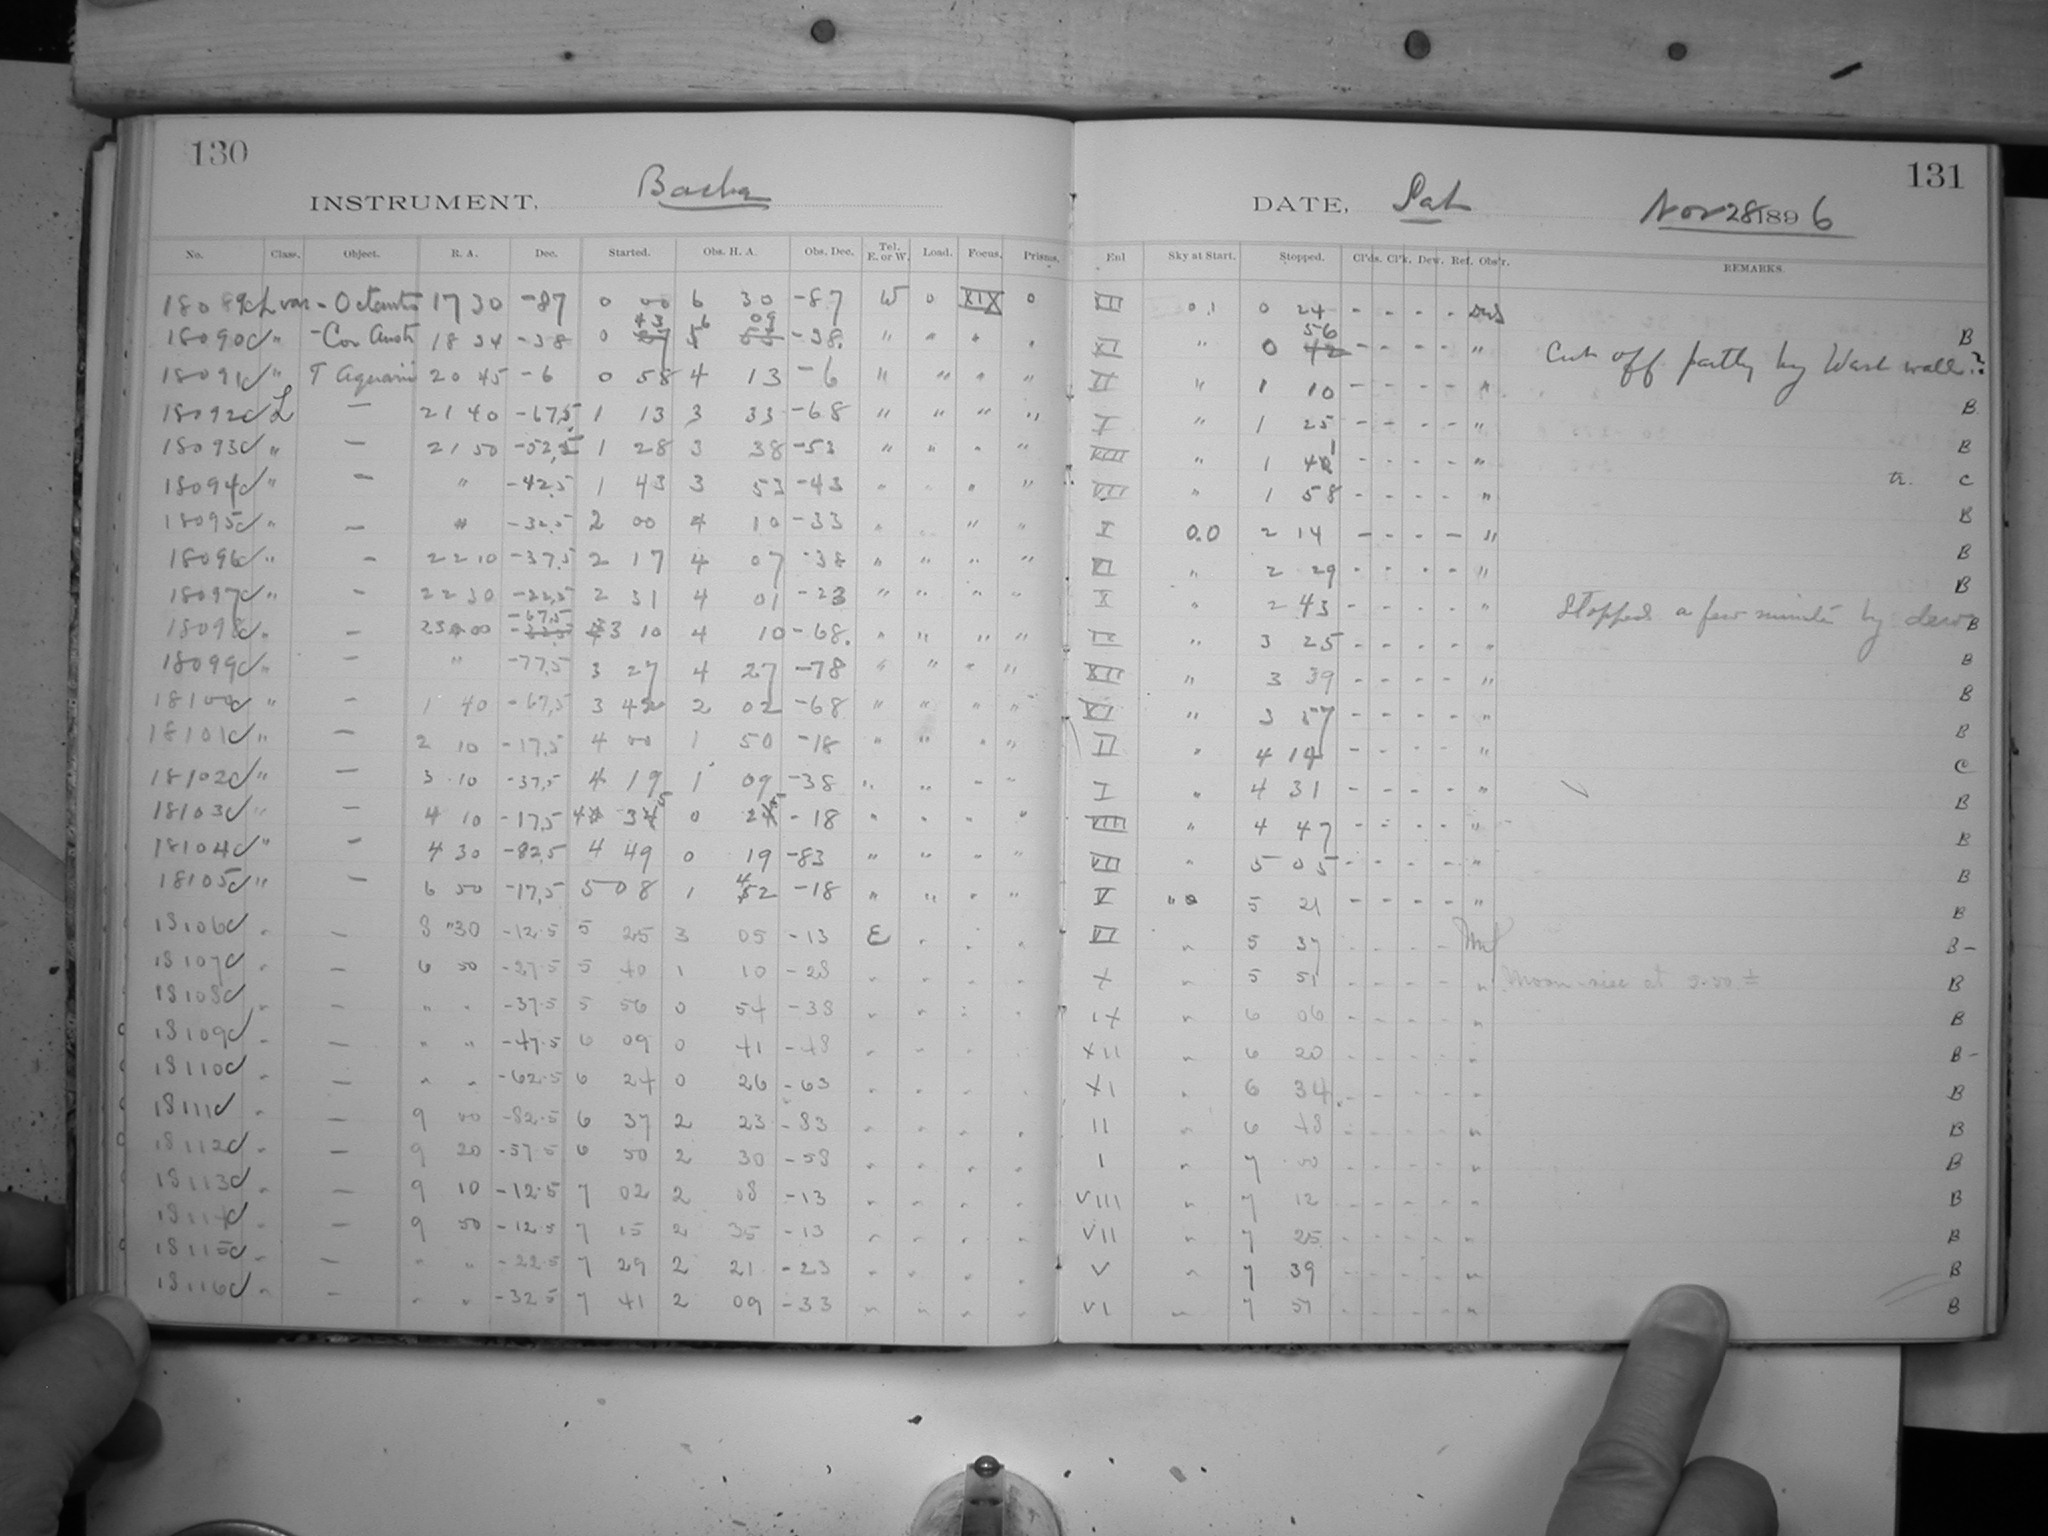 130
131
INSTRUMENT, Bache
DATE, Sat Nov 28 1896
No. Class. Object. R. A. Dec. Started. Obs. H. A. Obs. Dec. Tel. E. or W. Load. Focus. Prisms. Enl Sky at Start. Stopped. Cl'ds. Cl'k. Dew. Ref. Obs'r. REMARKS.
18089 L var - Octantis 17 30 -87 0 00 6 30 -87 W 0 XIX 0 XII 0.1 0 24 - - - - B
18090 " - Cor Austr 18 34 -38 0 43 6 09 -38 " " " " XI " 0 56 - - - - " Cut off partly by West wall?
18091 " T Aquarii 20 45 -6 0 58 4 13 -6 " " " " II " 1 10 - - - - " B
18092 L - 21 40 -67.5 1 13 3 33 -68 " " " " I " 1 25 - - - - " B
18093 " - 21 50 -52.5 1 28 3 38 -53 " " " " VIII " 1 41 - - - - " tr. C
18094 " - " -42.5 1 43 3 53 -43 " " " " VII " 1 58 - - - - " B
18095 " - " -32.5 2 00 4 10 -33 " " " V 0.0 2 14 - - - - " B
18096 " - 22 10 -37.5 2 17 4 07 -38 " " " " VI " 2 29 - - - - " B
18097 " - 22 30 -22.5 2 31 4 01 -23 " " " " X " 2 43 - - - - " Stopped a few minutes by dew B
18098 " - 23 00 -67.5 3 10 4 10 -68 " " " " IX " 3 25 - - - - " B
18099 " - " -77.5 3 27 4 27 -78 " " " " XII " 3 39 - - - - " B
18100 " - 1 40 -67.5 3 42 2 02 -68 " " " " XI " 3 57 - - - - " B
18101 " - 2 10 -17.5 4 00 1 50 -18 " " " " II " 4 14 - - - - " C
18102 " - 3 10 -37.5 4 19 1 09 -38 " " " " I " 4 31 - - - - " B
18103 " - 4 10 -17.5 4 35 0 25 -18 " " " " VIII " 4 47 - - - - " B
18104 " - 4 30 -82.5 4 49 0 19 -83 " " " " VII " 5 05 - - - - " B
18105 " - 6 50 -17.5 5 08 1 42 -18 " " " " V " 5 21 - - - - " B
18106 " - 8 30 -12.5 5 25 3 05 -13 E " " " VI " 5 37 - - - - B -
18107 " - 6 50 -27.5 5 40 1 10 -28 " " " " X " 5 51 - - - - " Moon rise at B
18108 " - " " -37.5 5 56 0 54 -38 " " " " IX " 6 06 - - - - " B
18109 " - " " -47.5 6 09 0 41 -48 " " " " XII " 6 20 - - - - " B -
18110 " - " " -62.5 6 24 0 26 -63 " " " " XI " 6 34 - - - - " B
18111 " - 9 00 -82.5 6 37 2 23 -83 " " " " II " 6 48 - - - - " B
18112 " - 9 20 -57.5 6 50 2 30 -58 " " " " I " 7 00 - - - - " B
18113 " - 9 10 -12.5 7 02 2 08 -13 " " " " VIII " 7 12 - - - - " B
18114 " - 9 50 -12.5 7 15 2 35 -13 " " " " VII " 7 25 - - - - " B
18115 " - " " -22.5 7 29 2 21 -23 " " " " V " 7 39 - - - - " B
18116 " - " " -32.5 7 41 2 09 -33 " " " " VI " 7 51 - - - - " B